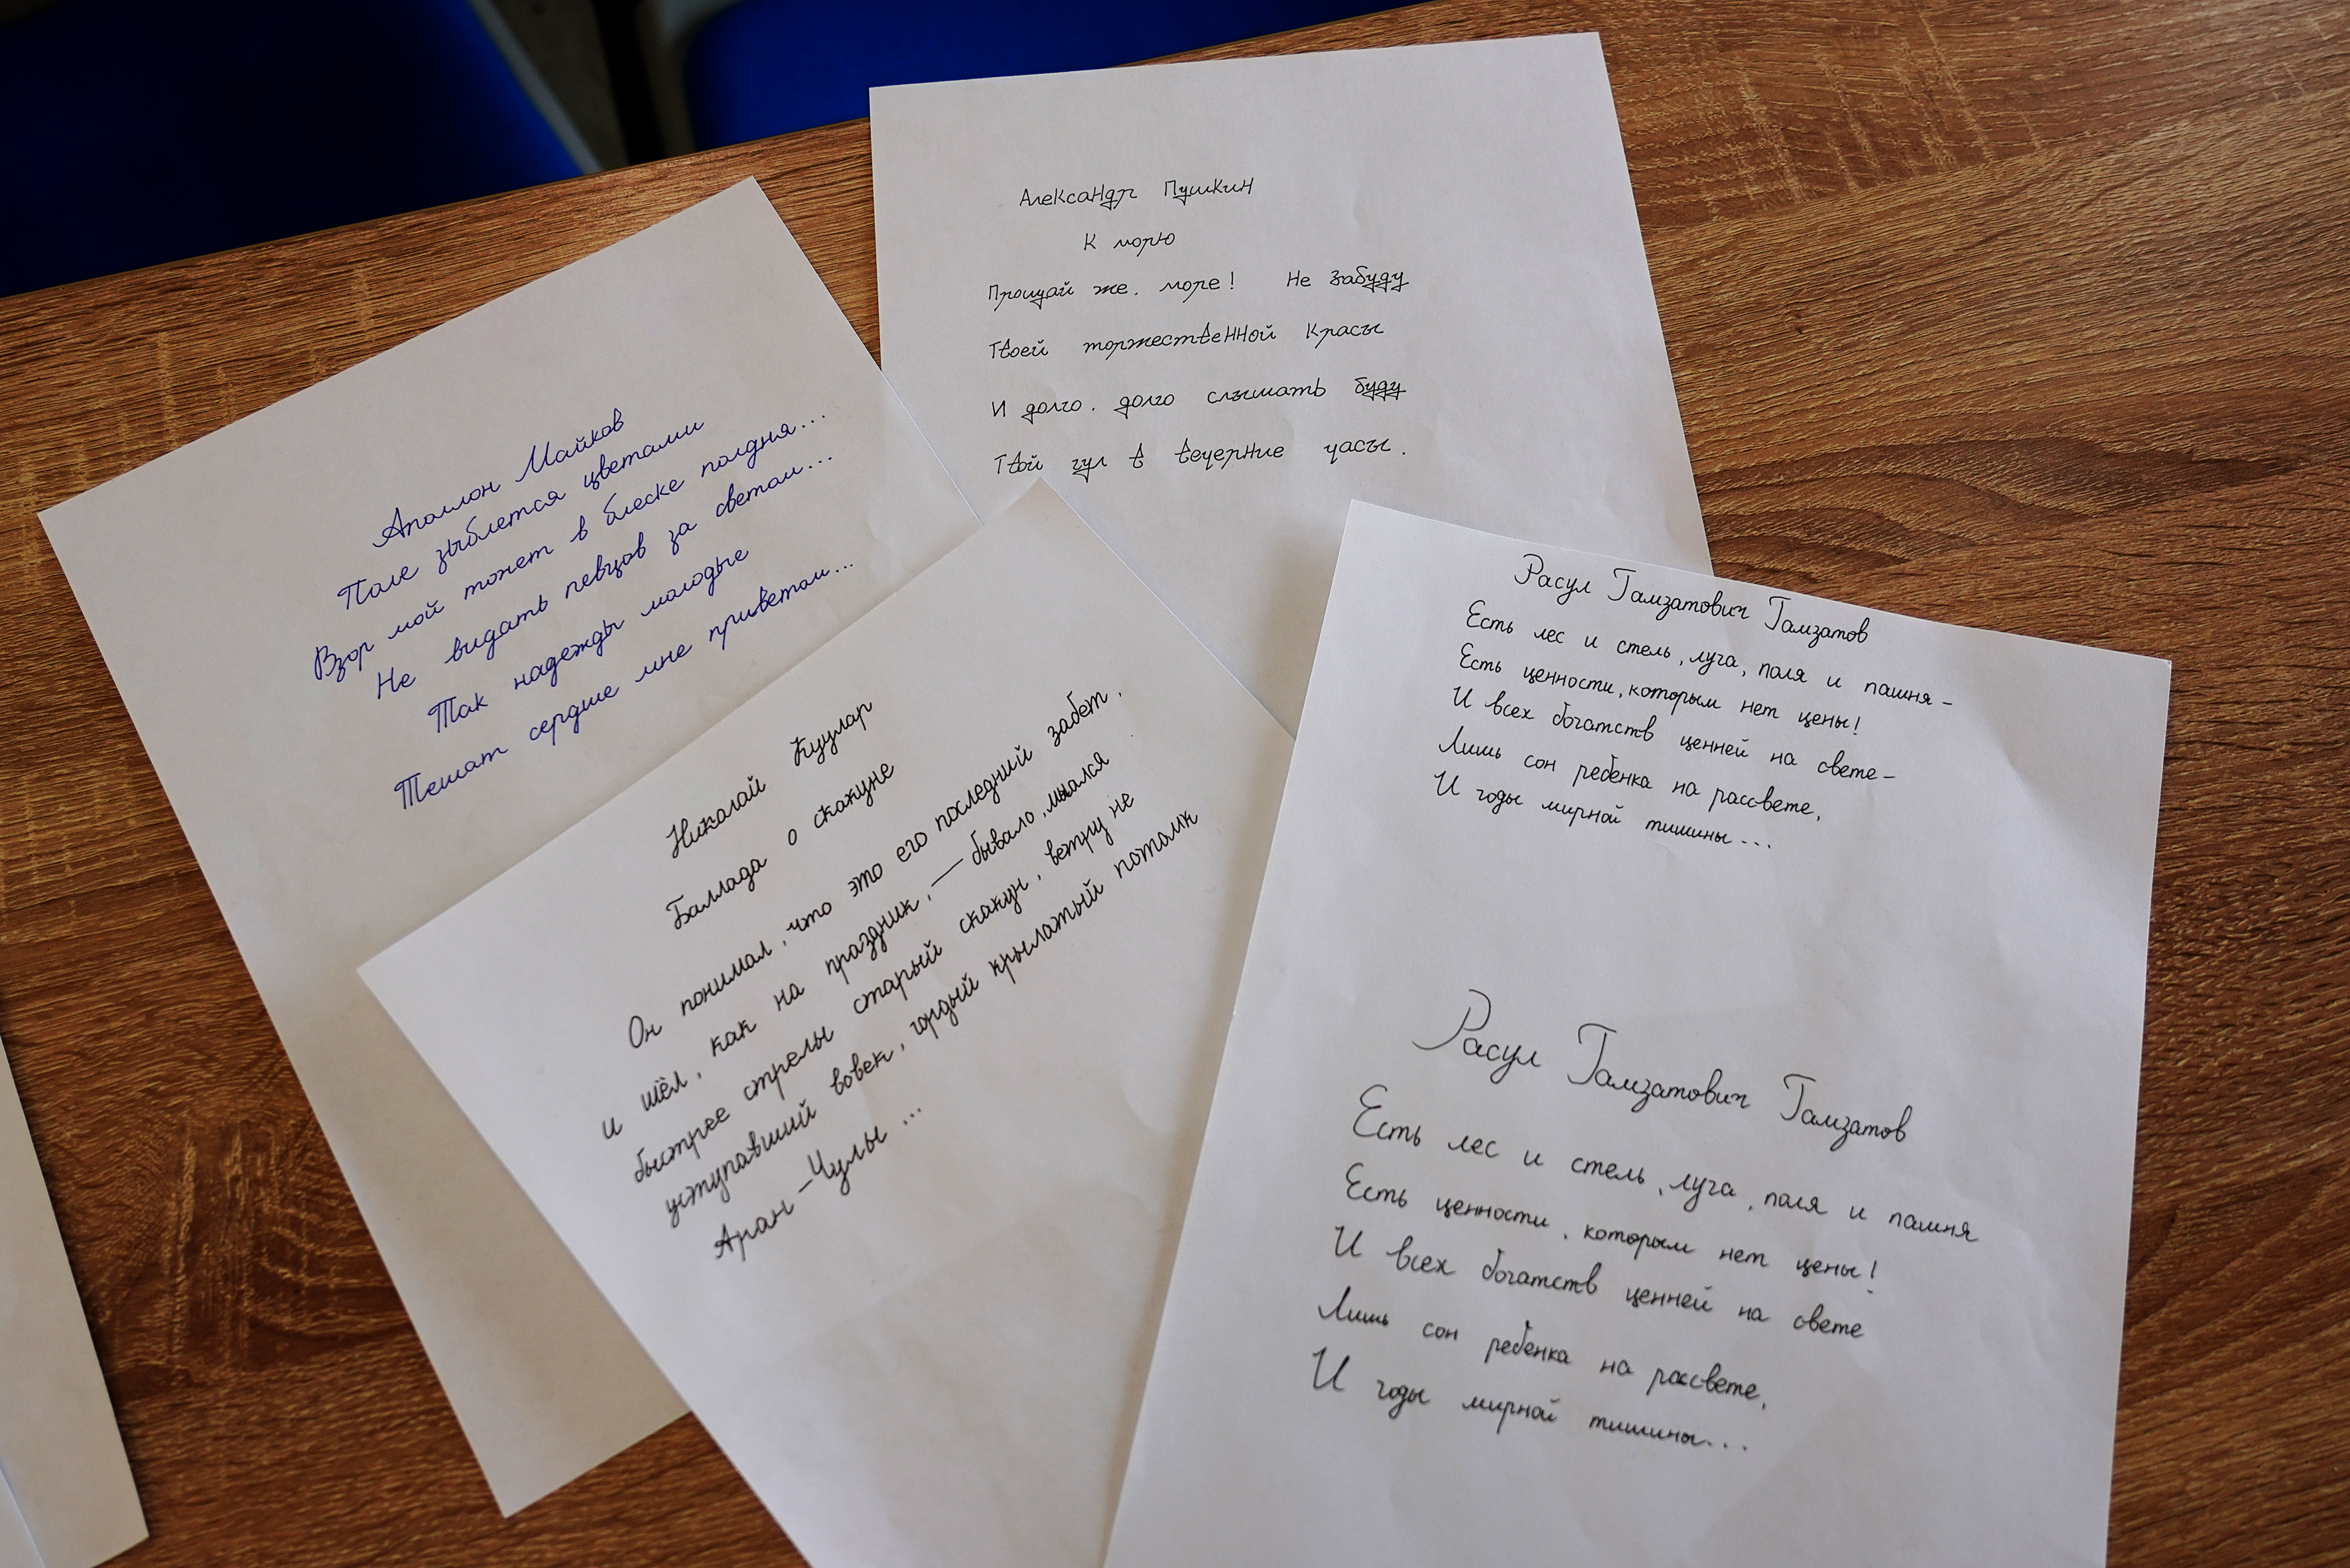 Аполлон Майков
Поле зыблется цветами
Взор мой тонет в блеске полдня...
Не видать певцов за светом...
Так надежды молодые
Тешат сердце мне приветом...
Александр Пушкин
К морю
Прощай же, море! Не забуду
Твоей торжественной красы
И долго, долго слышать буду
Твой гул в вечерние часы.
Николай Куулар
Баллада о скакуне
Он понимал, что это его последний забег,
и шёл, как на праздник, — бывало, мчался
быстрее стрелы старый скакун, ветру не
уступавший вовек, гордый крылатый потомк
Аран-Чулы...
Расул Гамзатович Гамзатов
Есть лес и степь, луга, поля и пашня-
Есть ценности, которым нет цены!
И всех богатств ценней на свете-
Лишь сон ребенка на рассвете,
И годы мирной тишины...
Расул Гамзатович Гамзатов
Есть лес и степь, луга, поля и пашня
Есть ценности, которым нет цены!
И всех богатств ценней на свете
Лишь сон ребенка на рассвете,
И годы мирной тишины...